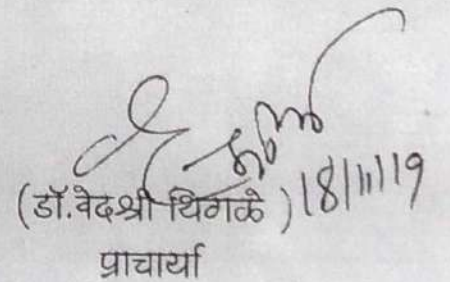 (डॉ.वेदश्री थिगळे) 18/11/19
प्राचार्या